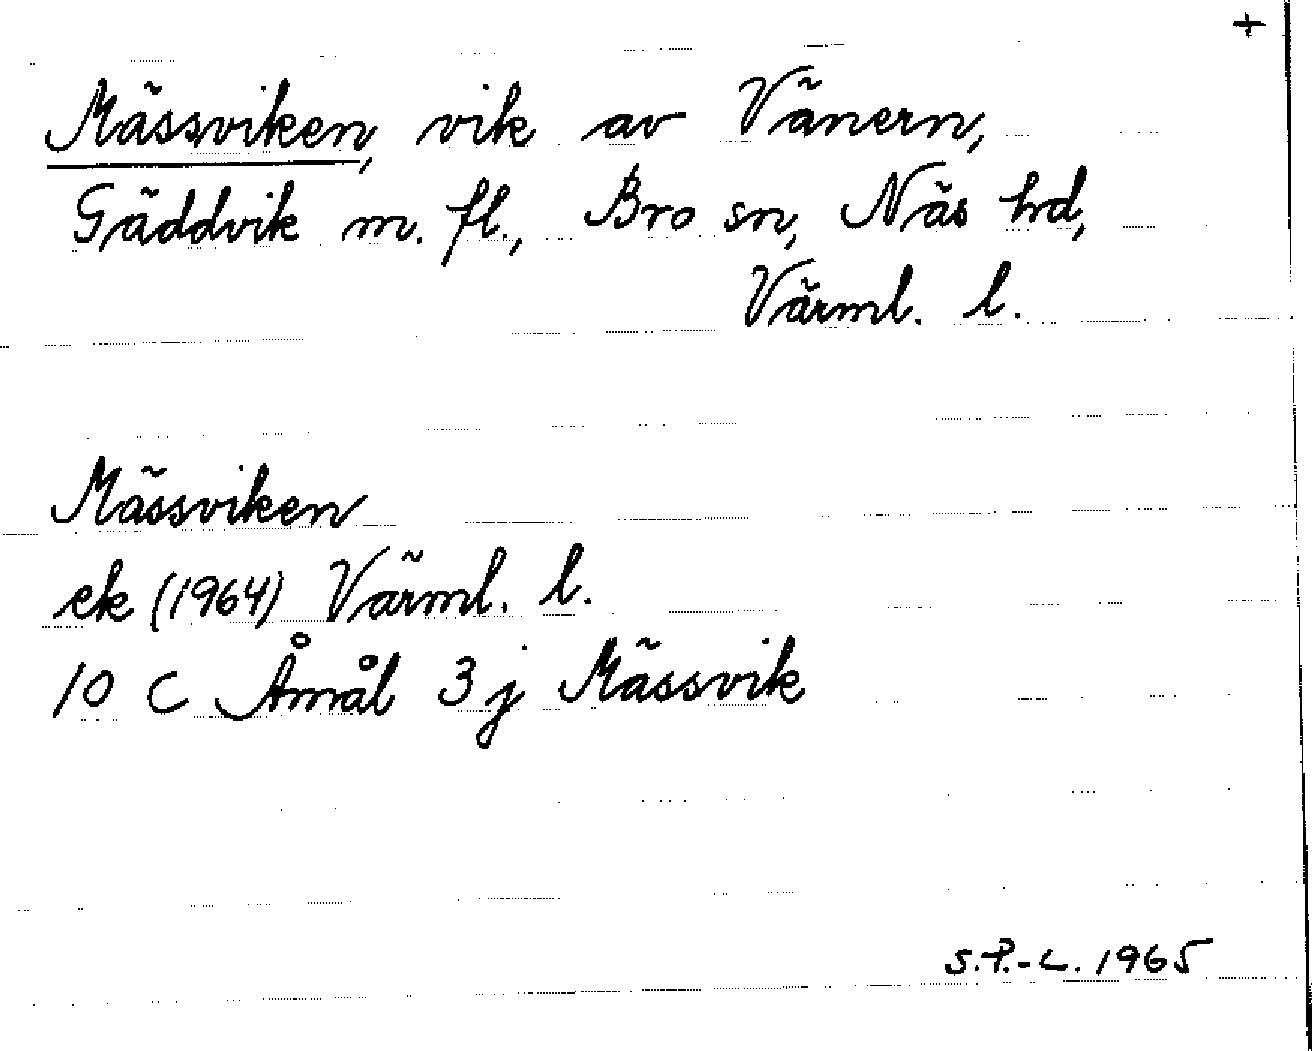 +
Mässviken, vik av Vänern,
Gäddvik m. fl., Bro sn, Näs hd,
Värml. l.
Mässviken
ek (1964) Värml. l.
10 C Åmål 3 j Mässvik
S.P.-L. 1965